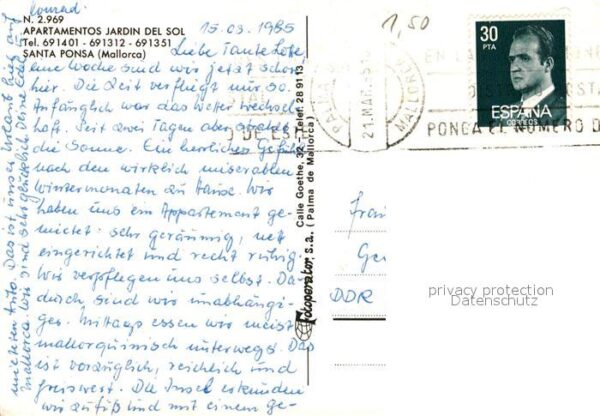 N. 2.969
APARTAMENTOS JARDIN DEL SOL
Tel. 691401 - 691312 - 691351
SANTA PONSA (Mallorca)
15.03.1985
Liebe Tante Lote
eine Woche sind wir jetzt schon
hier. Die Zeit verfliegt nur so.
Anfänglich war das Wetter wechsel-
haft. Seit zwei Tagen aber strahlt
die Sonne. Ein herrliches Gefühl
nach den wirklich miserablen
Wintermonaten zu Hause. Wir
haben uns ein Appartement ge-
mietet: sehr geräumig, nett
eingerichtet und recht ruhig.
Wir verpflegen uns selbst. Da-
durch sind wir unabhängi-
ger. Mittags essen wir meist
mallorquinisch unterwegs. Das
ist vorzüglich, reichlich und
preiswert. Die Insel erkunden
wir zu Fuß und mit einem ge-
mieteten Auto. Das ist unser Urlaub hier auf
Mallorca. Wir sind sehr glücklich. Deine Edith
Conrad.
Fotoperator, s.a.
Calle Goethe, 32 - Telef. 28 91 13
(Palma de Mallorca)
1,50
30
PTA
ESPAÑA
CORREOS
PALMA
21.MAR.85
MALLORCA
EN LA
PONGA EL NUMERO D
DDR
privacy protection
Datenschutz